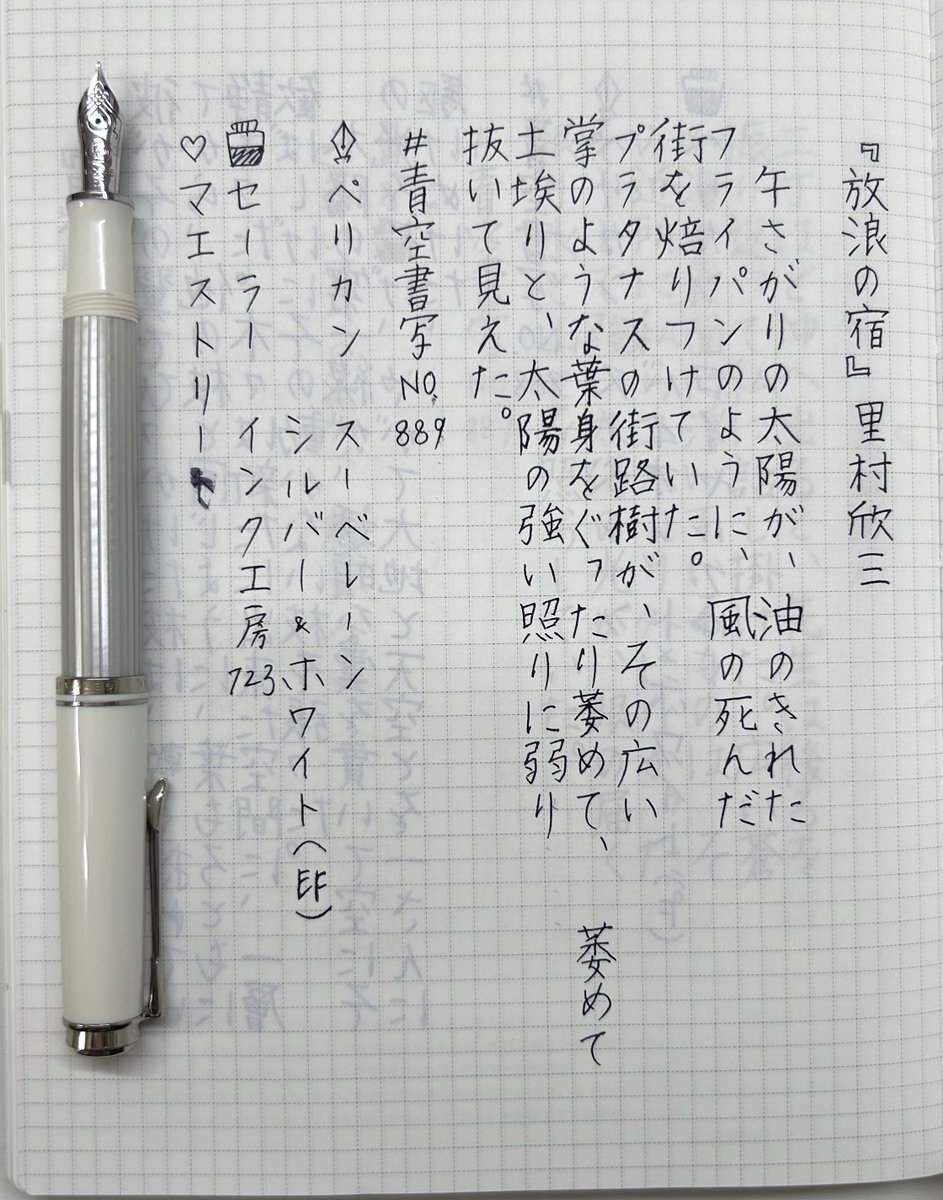 『放浪の宿』里村欣三
午さがりの太陽が、油のきれた
フライパンのように、風の死んだ
街を焙りつけていた。
プラタナスの街路樹が、その広い
掌のような葉身をぐったり萎めて、 萎めて
土埃りと、太陽の強い照りに弱り
抜いて見えた。
#青空書写 NO.889
ペリカン スーベレーン
シルバー&ホワイト(EF)
セーラー インク工房723
♡マエストリー